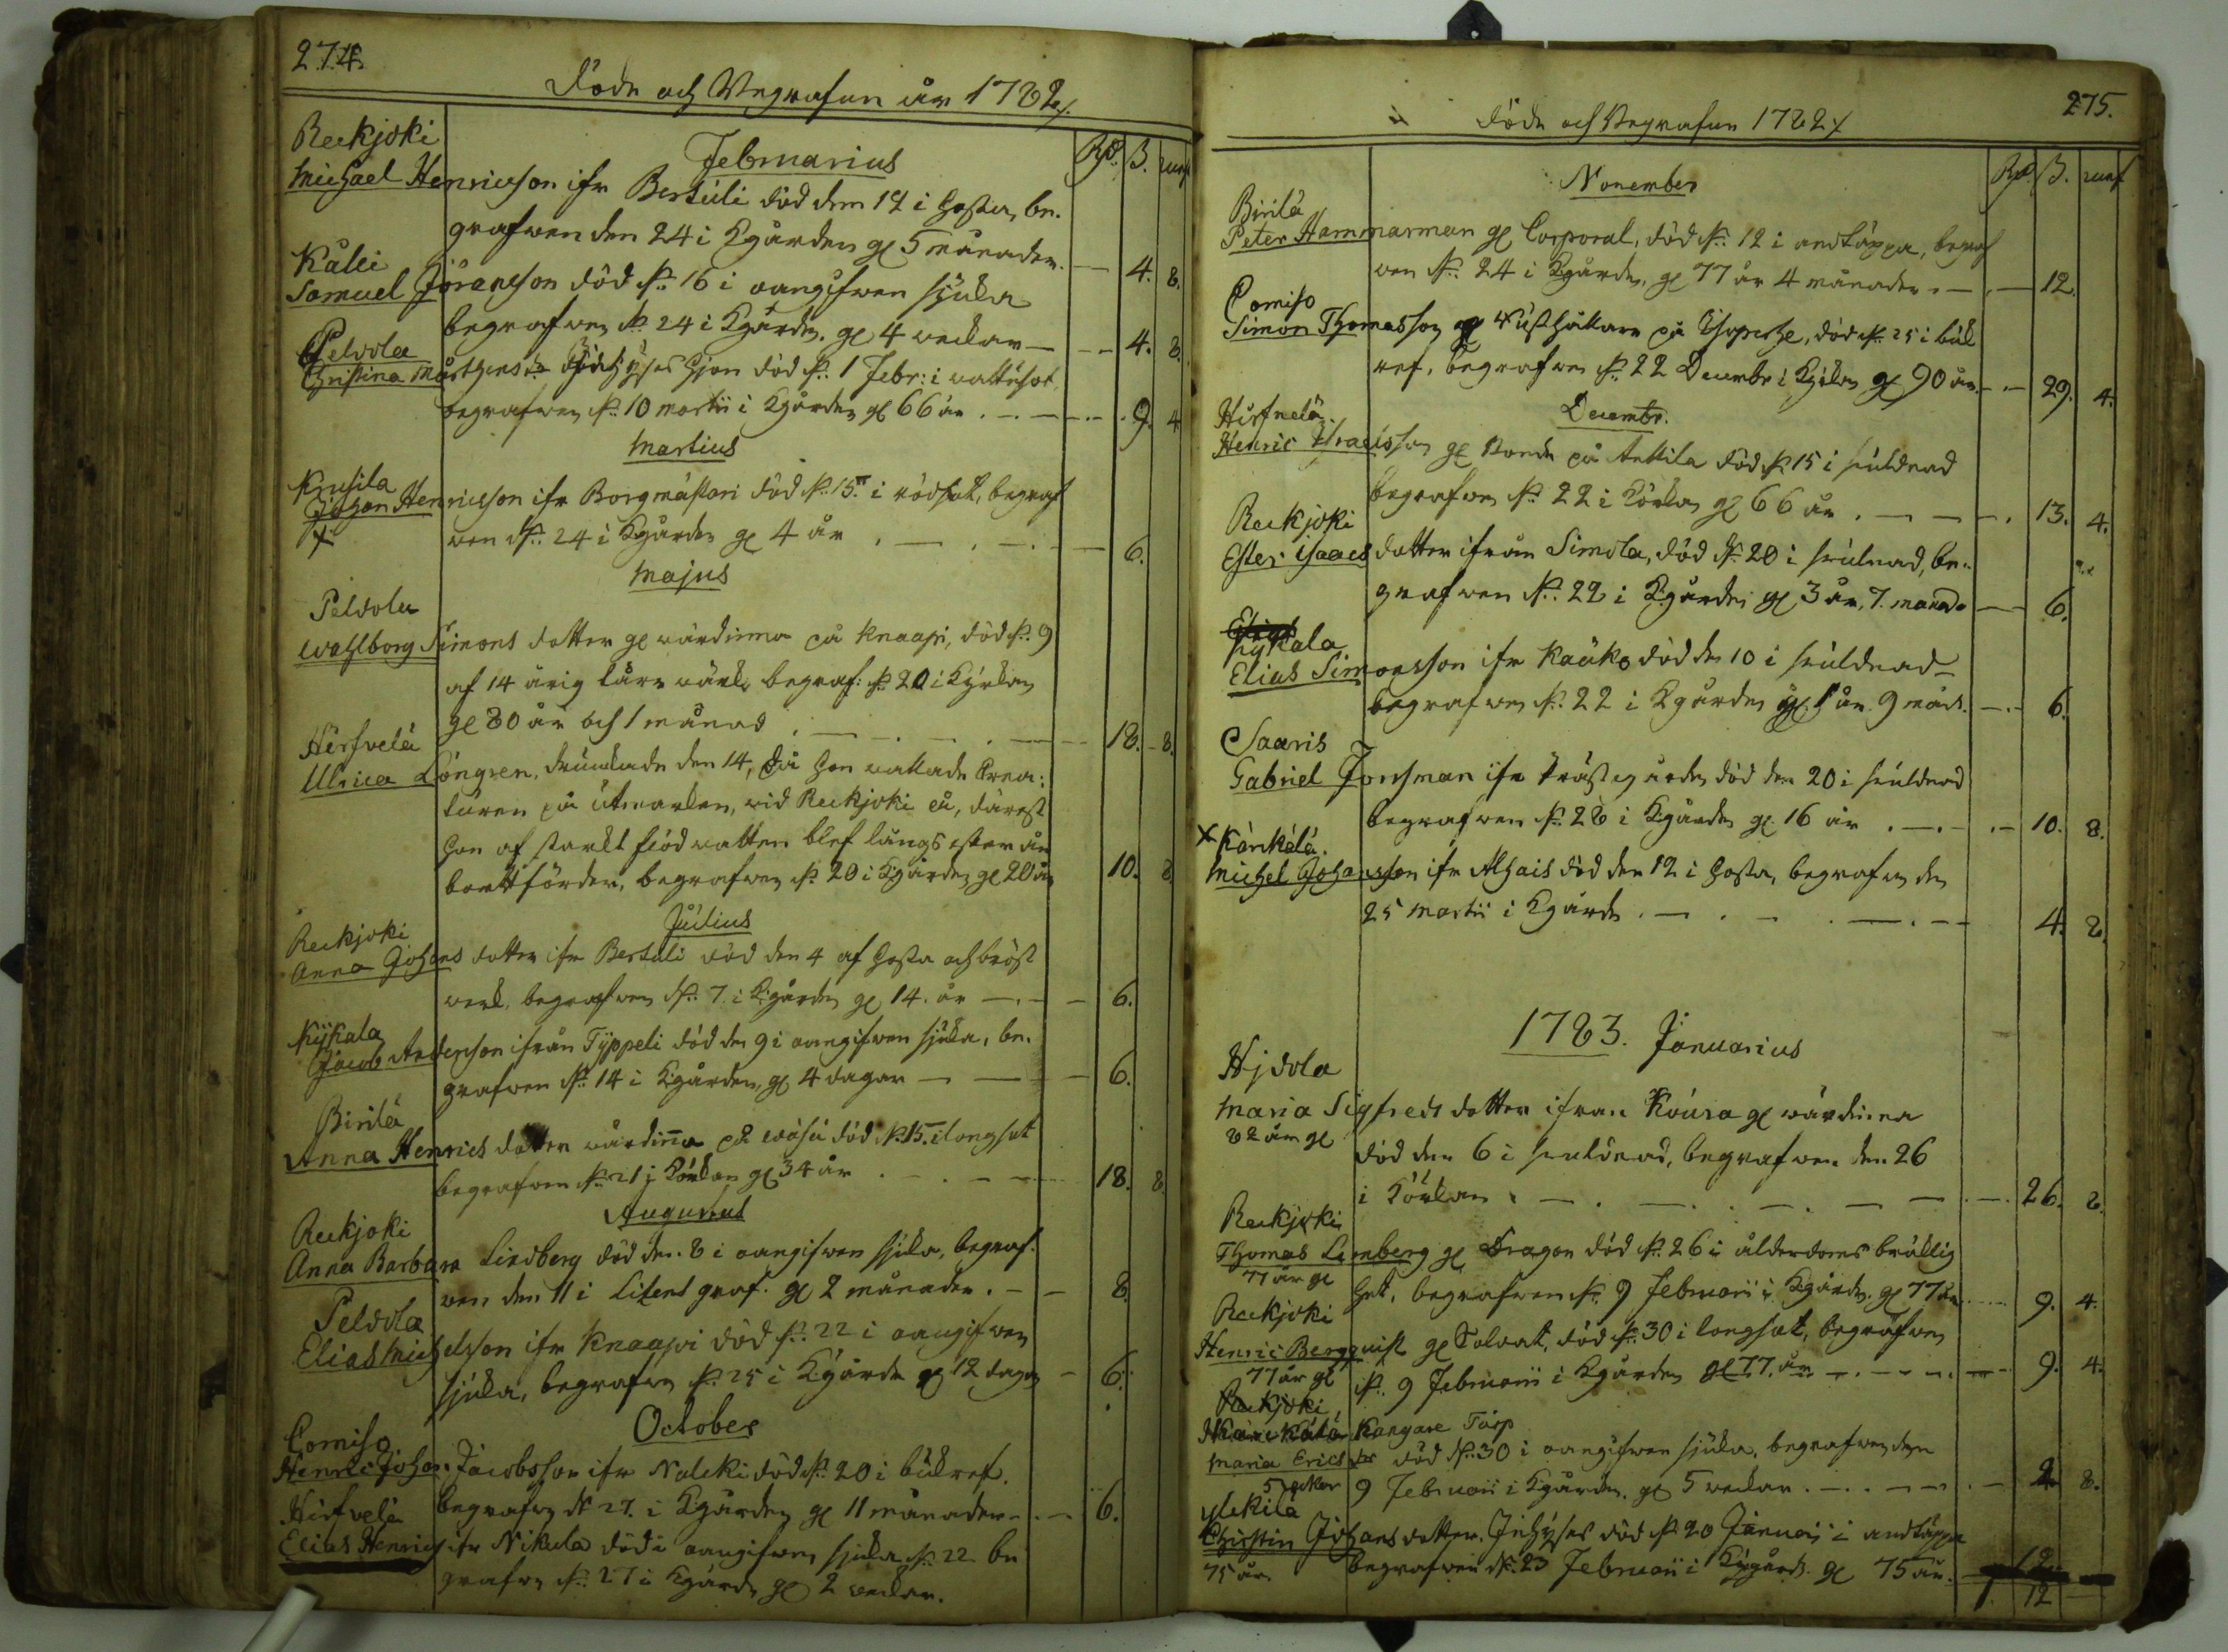 274.
Döde och Begrafne år 1782.
Reckjoki
Februarius
Rd. ß. runst
Michael Henricsson ifr Bertuli död den 12 i Hosta, be-
grafwen den 24 i Kgården gl 5 månader. — 4. 8.
Källi
Samuel Göransson död d. 16 i oangifwen sjuka
begrafwen d. 24 i Kgården gl 4 weckor — 4. 8.
Peldola
Christina Mårthens dr Inhyses Hjon död d. 1 Febr: i wattusot,
begrafwen d. 10 Martii i Kgården gl 66 år — 9. 4
Martius
Krusila
Johan Henricsson ifr Borgmästari död d. 15 i rödsot, begraf
wen d. 24 i Kgården gl 4 år — 6.
Majus
Peldola
Wahlborg Simons dotter gl wärdinna på Knaapi, död d. 9
af 14 årig lårwärk, begraf: d. 20 i Kyrkan
gl 80 år och 1 månad — 18. 8.
Hirfvelä
Ulrica Löngren, drunknade den 14, då hon wallade Krea-
turen på utmarken, wid Reckjoki å, därest
hon af starkt flodwatten blef längs efter ån
bortförder, begrafwen d. 20 i Kgården gl 20 år 10. 8
Julius
Reckjoki
Anna Johans dotter ifr Bertuli död den 4 af Hosta och bröst
werk, begrafwen d. 7 i Kgården gl 14. år — 6.
Kykala
Jacob Andersson ifrån Typpeli död den 9 i oangifwen sjuka, be-
grafwen d. 14 i Kgården, gl 4 dagar — 6.
Birilä
Anna Henrics dotter wärdinna på Wäsü död d. 15. i longsot
begrafwen d. 21 i Körkan gl 34 år 18. 8.
Augustus
Reckjoki
Anna Barbara Lindberg död den 8 i oangifwen sjuka, begraf-
wen den 11 i Litens graf. gl 2 månader. — 8.
Peldola
Elias Michelsson ifr Knaapi död d. 22 i oangifwen
sjuka, begrafwen d. 25 i Kgården gl 12 dagar — 6.
October
Comiso
Henric Johan Jacobsson ifr Nalcki död d. 20 i bukref.
begrafwen d. 27. i Kgården gl 11 månader — 6.
Hirfvelä
Elias Henrics ifr Nikula död i oangifwen sjuka d. 22 be
grafwen d. 27 i Kgården gl 2 weckor.
275.
Döde och Begrafne 1782
November
Rd. ß. runst
Birilä
Peter Hammarman gl Corporal, död d. 12 i andtäppa, begraf
wen d. 24 i Kgården, gl 77 år 4 månader — 12.
Comiso
Simon Thomasson gl Rusthållare på, död d. 25 i buk
ref, begrafwen d. 22 Decembr i Kyrkan gl 90 år. — 29. 4.
Hirfvelä
Decembr.
Henric Isacsson gl Bonde på Anttila död d. 15 i huldnad
begrafwen d. 22 i Körkan gl 66 år — 13. 4.
Reckjoki
Ester Isaacs dotter ifrån Simola, död d. 20 i huldnad, be-
grafwen d. 22 i Kgården gl 3 år, 7. månad — 6.
Kykala
Elias Simonsson ifr Kaäko död den 10 i huldnad
begrafwen d. 22 i Kgården gl. 1 år 9 mån. — 6.
Saaris
Gabriel Forsman ifr Prästegården död den 20 i huldnad
begrafwen d. 28 i Kgården gl 16 år — 10. 8.
x Kärikälä.
Michel Johansson ifr Alhais död den 12 i Hosta, begrafwen den
25 Martii i Kgården — 4. 8.
1783. Januarius
Hjdola
Maria Sigfreds dotter ifrån Koura gl wärdinna
82 år gl
död den 6 i huldnad, begrafwen den 26
i Körkan — 26. 8.
Reckjoki
Thomas Lemberg gl Dragon död d. 26 i ålderdoms bräcklig
77 år gl
het, begrafwen d. 9 Februarii i Kgården. gl 77 år 9. 4.
Reckjoki
Henric Bergquist gl Soldat, död d. 30 i longsot, begrafwen
77 år gl
d. 9 Februarii i Kgården gl 77. år — 9. 4.
Reckjoki,
Kangare Torp
Maria Erics dr död d. 30 i oangifwen sjuka, begrafwen den
5 weckor
9 Februarii i Kgården. gl 5 weckor — 2. 8.
Christin Johans dotter. Inhyses död d. 20 Januarii i andtäppa
75 år.
begrafwen d. 23 Februarii i Kgården. gl 75 år.
1. 12